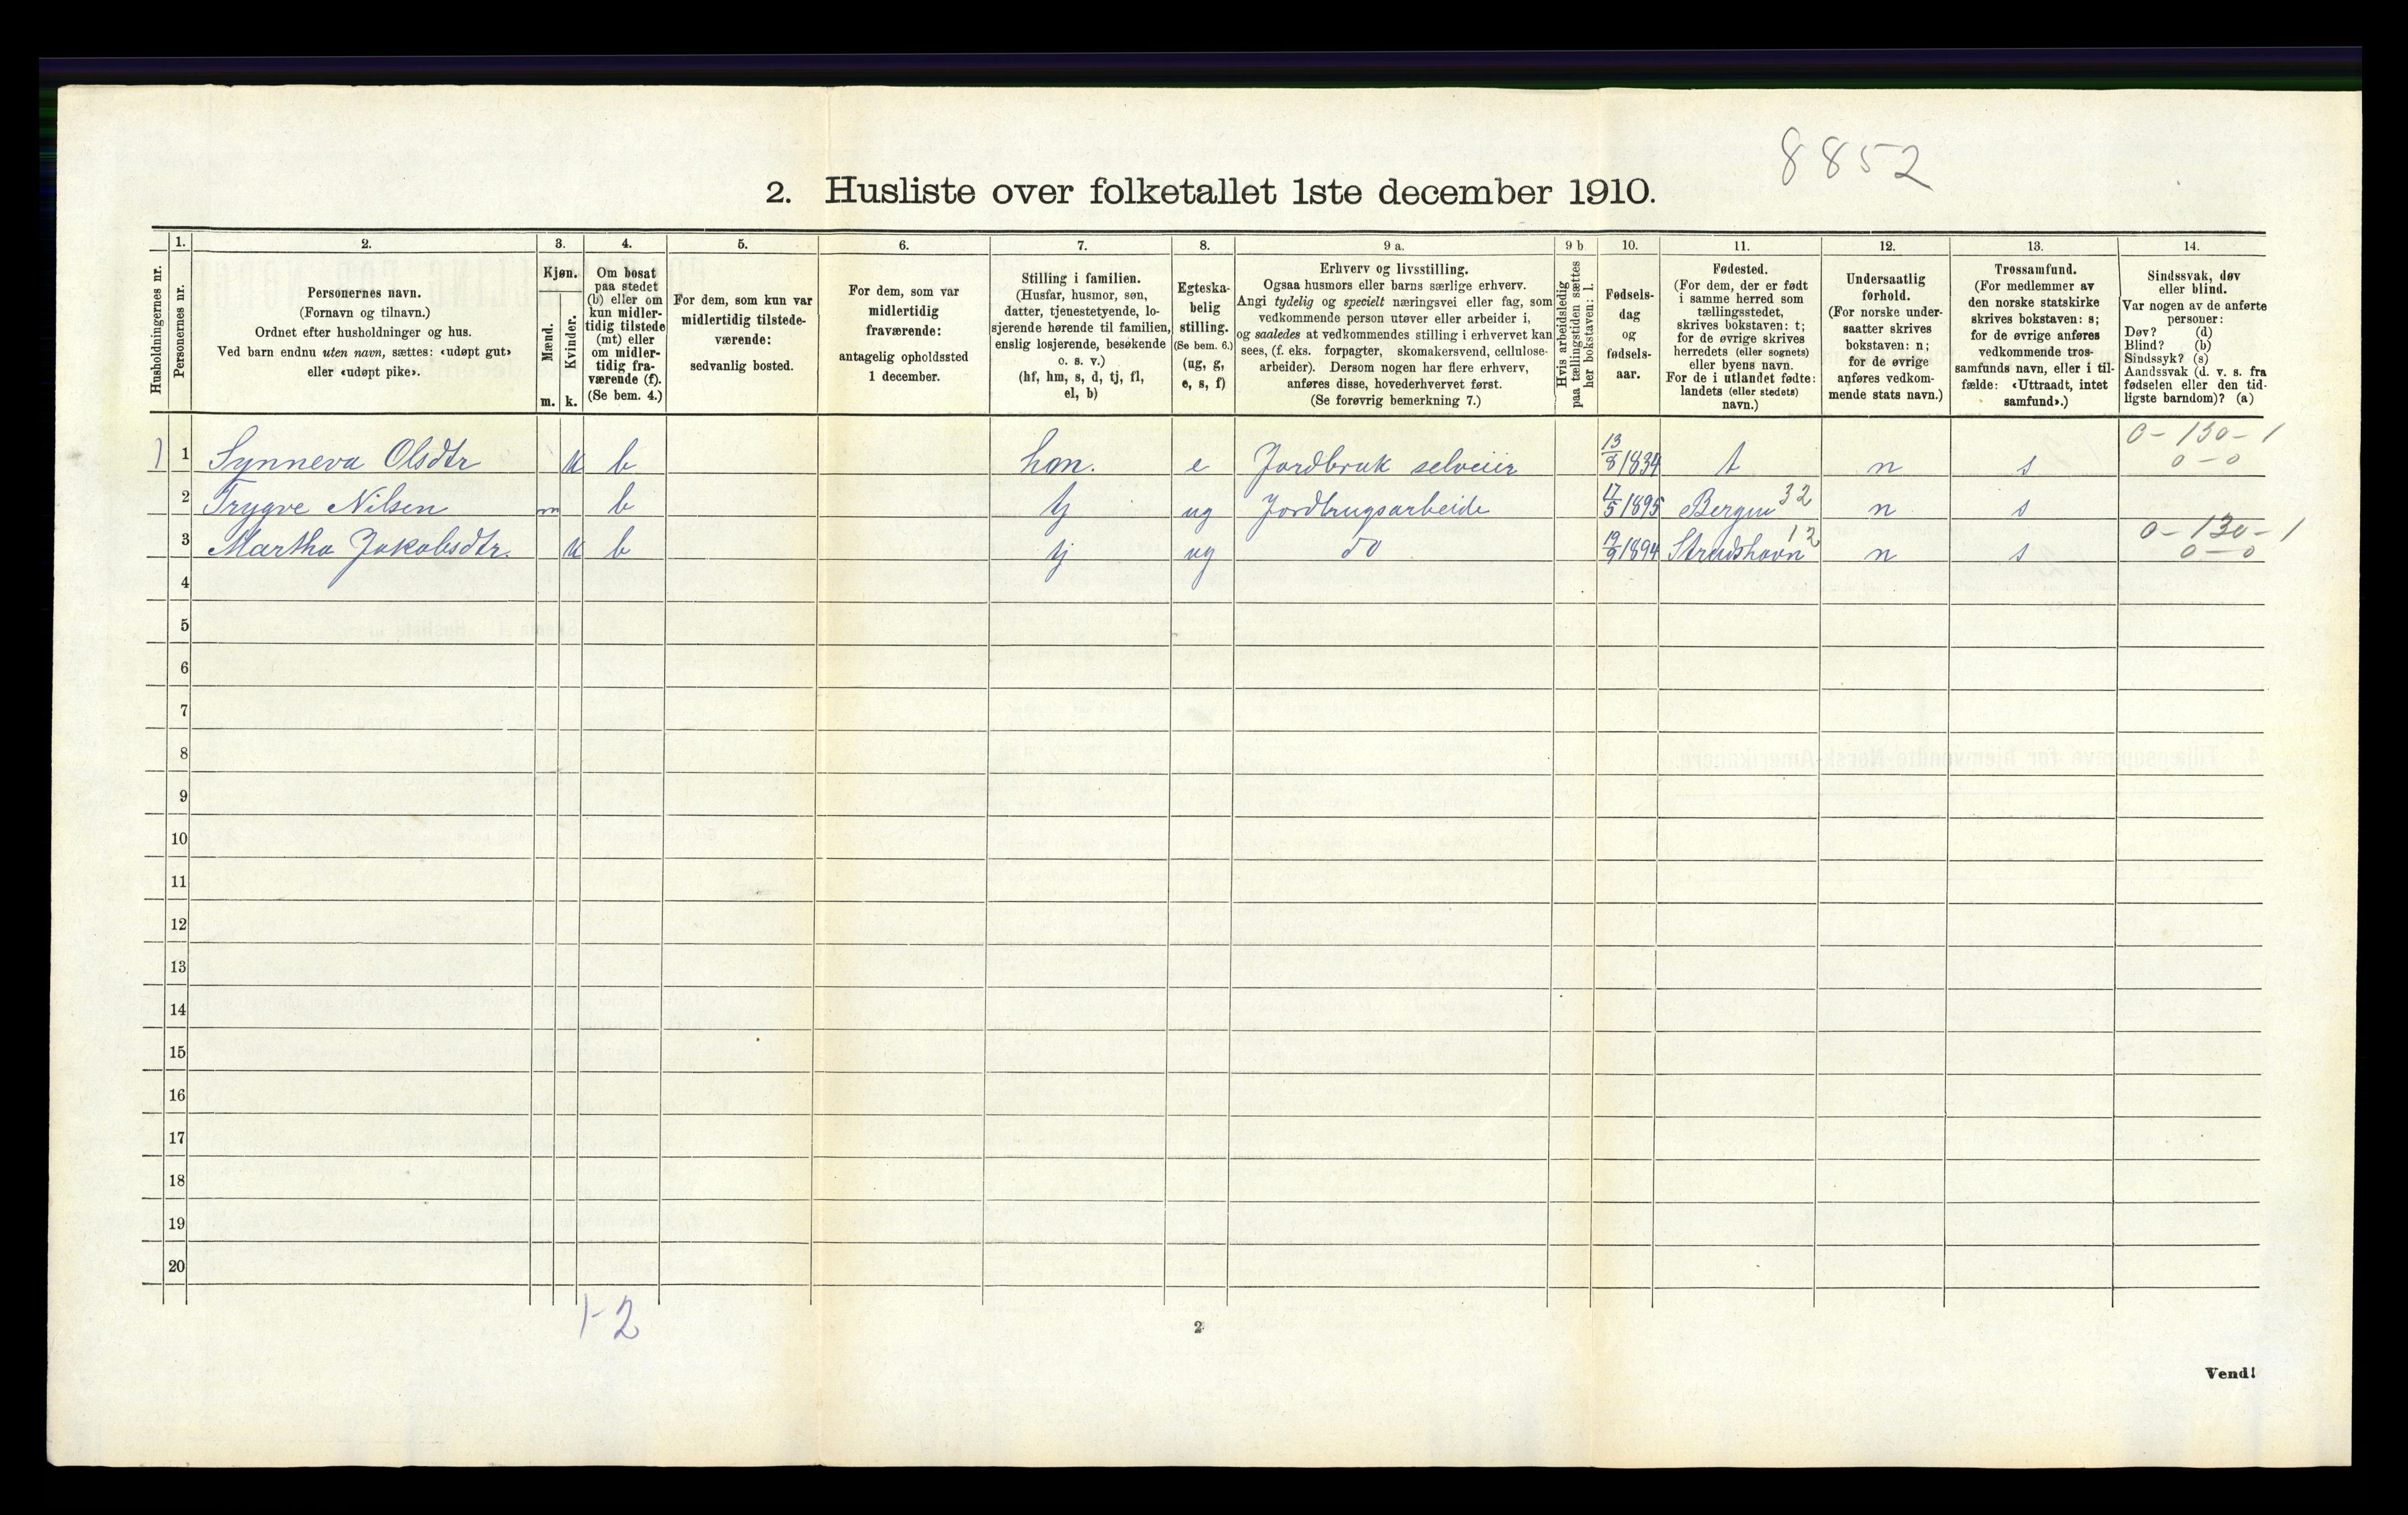 8852
2. Husliste over folketallet 1ste december 1910.
Husholdningernes nr.
1.
Personernes nr.
2.
Personernes navn.
(Fornavn og tilnavn.)
Ordnet efter husholdninger og hus.
Ved barn endnu uten navn, sættes: «udøpt gut»
eller «udøpt pike».
3.
Kjøn.
Mænd.
Kvinder.
m. k.
4.
Om bosat
paa stedet
(b) eller om
kun midler-
tidig tilstede
(mt) eller
om midler-
tidig fra-
værende (f).
(Se bem. 4.)
5.
For dem, som kun var
midlertidig tilstede-
værende:
sedvanlig bosted.
6.
For dem, som var
midlertidig
fraværende:
antagelig opholdssted
1 december.
7.
Stilling i familien.
(Husfar, husmor, søn,
datter, tjenestetyende, lo-
sjerende hørende til familien,
enslig losjerende, besøkende
o. s. v.)
(hf, hm, s, d, tj, fl,
el, b)
8.
Egteska-
belig
stilling.
(Se bem. 6.)
(ug, g,
e, s, f)
9 a.
Erhverv og livsstilling.
Ogsaa husmors eller barns særlige erhverv.
Angi tydelig og specielt næringsvei eller fag, som
vedkommende person utøver eller arbeider i,
og saaledes at vedkommendes stilling i erhvervet kan
sees, (f. eks. forpagter, skomakersvend, cellulose-
arbeider). Dersom nogen har flere erhverv,
anføres disse, hovederhvervet først.
(Se forøvrig bemerkning 7.)
9 b
Hvis arbeidsledig
paa tællingstiden sættes
her bokstaven: l.
10.
Fødsels-
dag
og
fødsels-
aar.
11.
Fødested.
(For dem, der er født
i samme herred som
tællingsstedet,
skrives bokstaven: t;
for de øvrige skrives
herredets (eller sognets)
eller byens navn.
For de i utlandet fødte:
landets (eller stedets)
navn.)
12.
Undersaatlig
forhold.
(For norske under-
saatter skrives
bokstaven: n;
for de øvrige
anføres vedkom-
mende stats navn.)
13.
Trossamfund.
(For medlemmer av
den norske statskirke
skrives bokstaven: s;
for de øvrige anføres
vedkommende tros-
samfunds navn, eller i til-
fælde: «Uttraadt, intet
samfund».)
14.
Sindssvak, døv
eller blind.
Var nogen av de anførte
personer:
Døv? (d)
Blind? (b)
Sindssyk? (s)
Aandssvak (d. v. s. fra
fødselen eller den tid-
ligste barndom)? (a)
0-130-1
1) 1 Synneva Olsdtr k b hm. e Jordbruk selveier 13/8 1834 t n s 0-0
2 Trygve Nilsen m b tj ug Jordbrugsarbeide 17/5 1895 Bergen 32 n s
0-130-1
3 Martha Jakobsdtr. k b tj ug do 1894 12 n s 0-0
4
5
6
7
8
9
10
11
12
13
14
15
16
17
18
19
20
1-2
2
Vend!